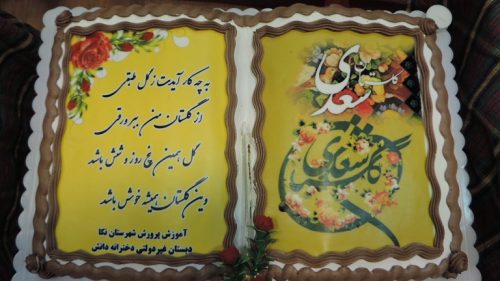 به چه کار آیدت ز گل طبقی
از گلستان من ببر ورقی
گل همین پنج روز و شش باشد
وین گلستان همیشه خوش باشد
آموزش پرورش شهرستان نکا
دبستان غیردولتی دخترانه دانش
گلستان
سعدی
گلستان سعدی